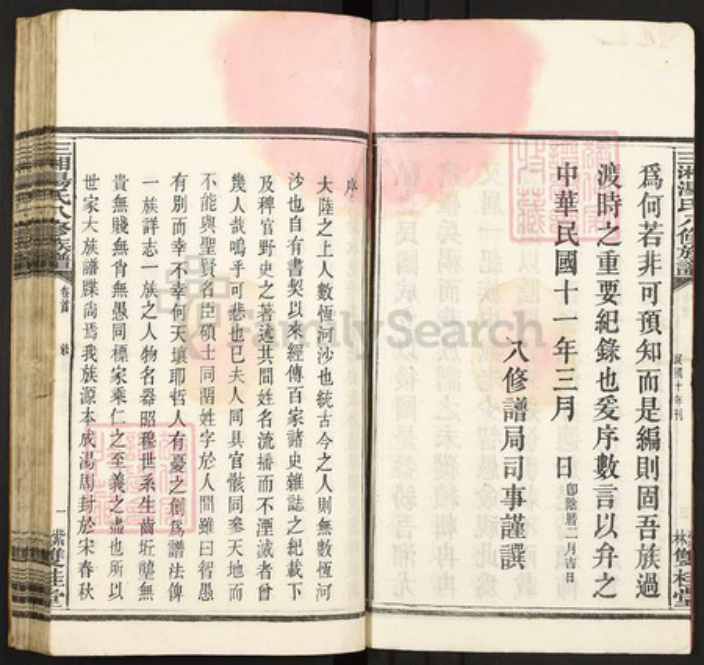 三湘湯氏八修族譜
民國十年刊
雙桂堂
為何若非可預知而是編則固吾族過
渡時之重要紀錄也爰序數言以弁之
中華民國十一年三月 日 卽陰曆二月吉日
八修譜局司事謹譔
序
大陸之上人數恆河沙也統古今之人則無數恆河
沙也自有書契以來經傳百家諸史雜誌之紀載下
及稗官野史之著述其間姓名流播而不湮滅者曾
幾人哉嗚乎可悲也已夫人同具官骸同參天地而
不能與聖賢名臣碩士同留姓字於人間雖曰智愚
有別而幸不幸何天壤耶哲人有憂之創為譜法俾
一族詳志一族之人物名器昭穆世系生齒坵壟無
貴無賤無肖無愚同標家乘仁之至義之盡也所以
世家大族譜牒尚焉我族源本成湯周封於宋春秋
三湘湯氏八修族譜
卷首
一
紫
雙桂堂
FamilySearch